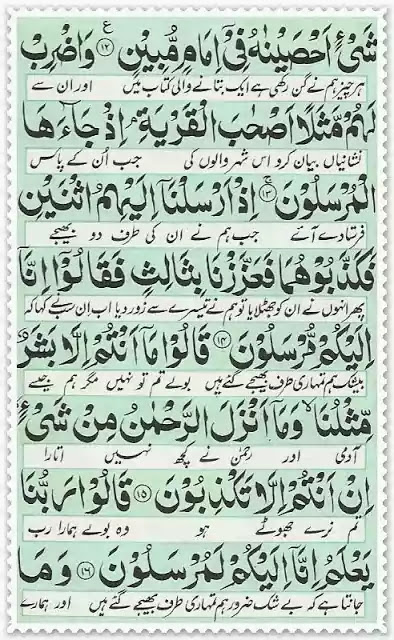 شَىْءٍ اَحْصَيْنٰهُ فِىْٓ اِمَامٍ مُّبِيْنٍ ﴿۱۲﴾ ع وَاضْرِبْ
ہر چیز ہم نے گن رکھی ہے ایک بتانے والی کتاب میں اور ان سے
لَهُمْ مَّثَلًا اَصْحٰبَ الْقَرْيَةِ ۘ اِذْ جَآءَهَا
نشانیاں بیان کرو اس شہر والوں کی جب اُن کے پاس
الْمُرْسَلُوْنَ ﴿۱۳﴾ ج اِذْ اَرْسَلْنَآ اِلَيْهِمُ اثْنَيْنِ
فرستادے آئے جب ہم نے ان کی طرف دو بھیجے
فَكَذَّبُوْهُمَا فَعَزَّزْنَا بِثَالِثٍ فَقَالُوْٓا اِنَّآ
پھر انہوں نے ان کو جھٹلایا تو ہم نے تیسرے سے زور دیا اب ان سب نے کہا کہ
اِلَيْكُمْ مُّرْسَلُوْنَ ﴿۱۴﴾ قَالُوْا مَآ اَنْتُمْ اِلَّا بَشَرٌ
بیشک ہم تمہاری طرف بھیجے گئے ہیں بولے تم تو نہیں مگر ہم جیسے
مِّثْلُنَا ۙ وَمَآ اَنْزَلَ الرَّحْمٰنُ مِنْ شَىْءٍ ۙ
آدمی اور رحمٰن نے کچھ نہیں اتارا
اِنْ اَنْتُمْ اِلَّا تَكْذِبُوْنَ ﴿۱۵﴾ قَالُوْا رَبُّنَا
تم نرے جھوٹے ہو وہ بولے ہمارا رب
يَعْلَمُ اِنَّآ اِلَيْكُمْ لَمُرْسَلُوْنَ ﴿۱۶﴾ وَمَا
جانتا ہے کہ بے شک ضرور ہم تمہاری طرف بھیجے گئے ہیں اور ہمارے